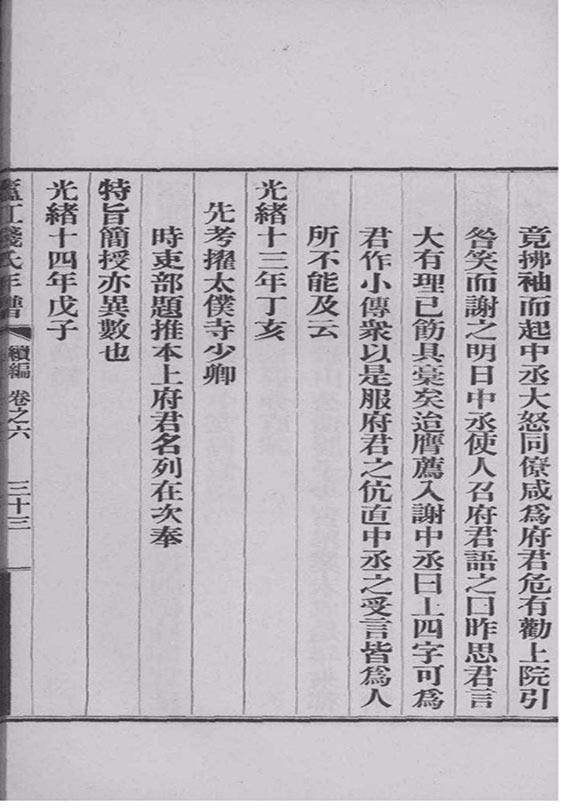 竟拂袖而起中丞大怒同僚咸爲府君危有勸上院引
咎笑而謝之明日中丞使人召府君語之曰昨思君言
大有理已飭具稾矣迨膺薦入謝中丞曰上四字可爲
君作小傳衆以是服府君之伉直中丞之受言皆爲人
所不能及云
光緒十三年丁亥
先考擢太僕寺少卿
時吏部題推本上府君名列在次奉
特旨簡授亦異數也
光緒十四年戊子
廬江錢氏年譜 續編 卷之六 三十三